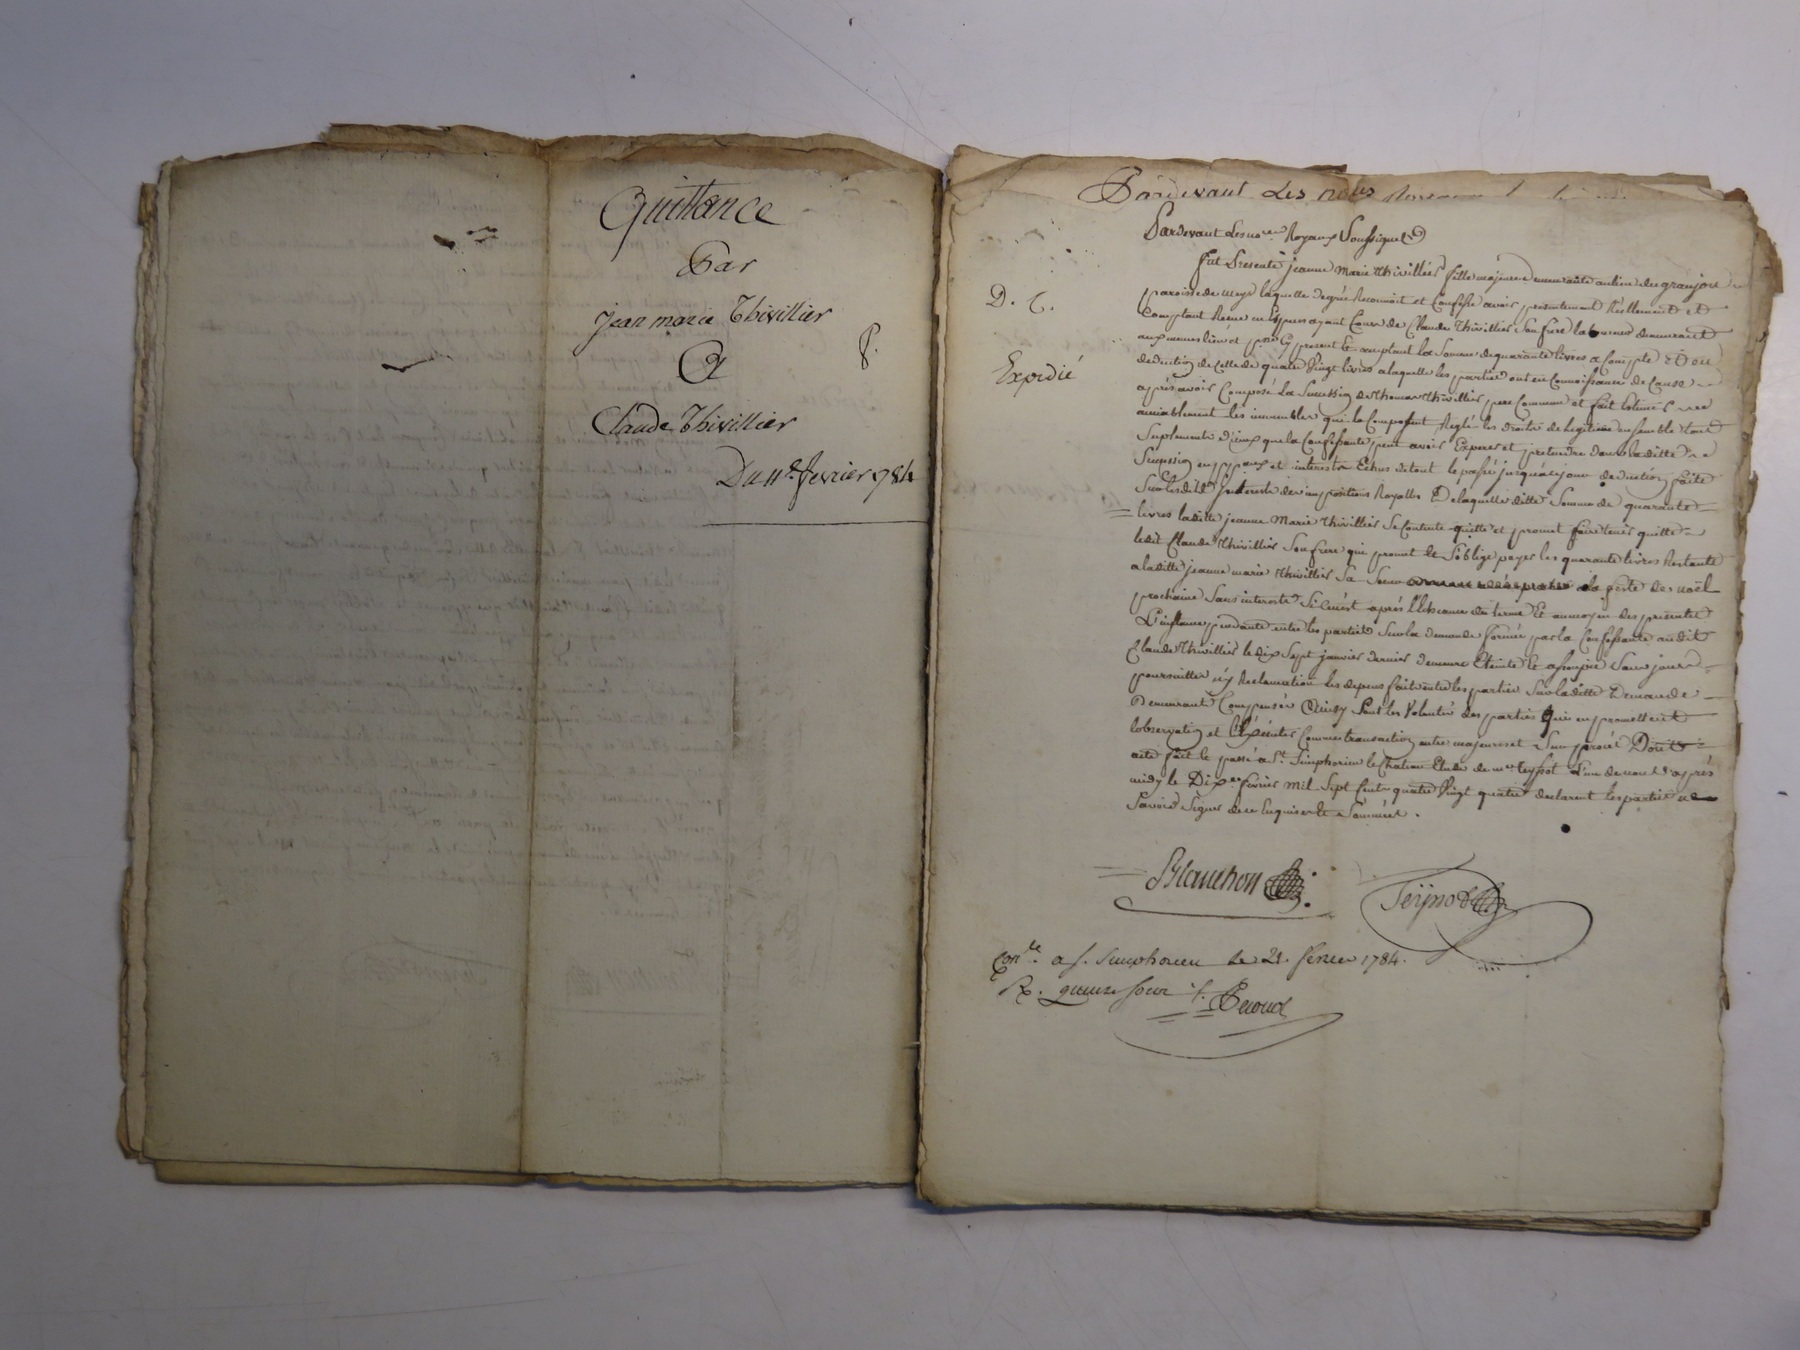 Quittance
Par
Jean marie Thivillier
A
P.
Claude Thivillier
Du 11e. fevrier 1784
Pardevant Les notes
Pardevant Les notres Royaux Soussignes
D. C.
Expedié
fut Presente jeanne Marie thivillier fille majeure demeurante au lieu du granjon
paroisse de meys laquelle degrée Reconnoit et Confesse avoir presentement Réellement et
Comptant Receu en Especes ayant Cours de Claude thivillier Son frere laboureur demeurant
aux memes lieu et psse Cy present Et acceptant la Somme de quarante livres a Compte et en
deduction de Celle de quatre Vingt livres a laquelle les parties ont en Connoissance de Cause
après avoir Composé La Succession de thomas thivillier pere Commun et fait Estimer
amiablement les immeubles qui la Composent Reglé les droits de legitime ensemble tout
Suplement d'iceux que la Confessante peut avoir Experer et pretendre dans laditte
Succession en ppaux et interests Echus de tout le passé jusqu'a cejour deduction faite
Sur lesdits Interests des impositions Royalles De laquelle ditte Somme de quarante
livres laditte jeanne Marie thivillier Se Contente quitte et promet faire tenir quitte
ledit Claude thivillier Son frere qui promet et S'oblige payer les quarante livres Restante
a laditte jeanne marie thivillier Sa Soeur a la feste de noël
prochaine Sans interests Si Ce n'est après l'Echeance du terme Et au moyen des presentes
L'instance pendante entre les parties Sur la demande formée par la Confessante audit
Claude thivillier le dix Sept janvier dernier demeure Eteinte et assoupie Sans jour
poursuitte n'y Reclamation les depens faits entre les parties Sur laditte Demande
Demeurant Compensés Ainsy Sont les Volontés des parties Qui en promettent
l'observation et l'Exécuter Comme transaction entre majeurs et Sur procès Dont
acte fait et passé a St. Simphorien le Chateau Etude de me teyssot L'un de nous d'après
midy le Dix er fevrier mil Sept Cent quatre Vingt quatre declarent les parties ne
Savoir Signer de ce Enquises et Sommées.
Blanchon
Teÿnot
Conlé. a St. Simphorien le 21. fevrier 1784.
Rx. quinze sous